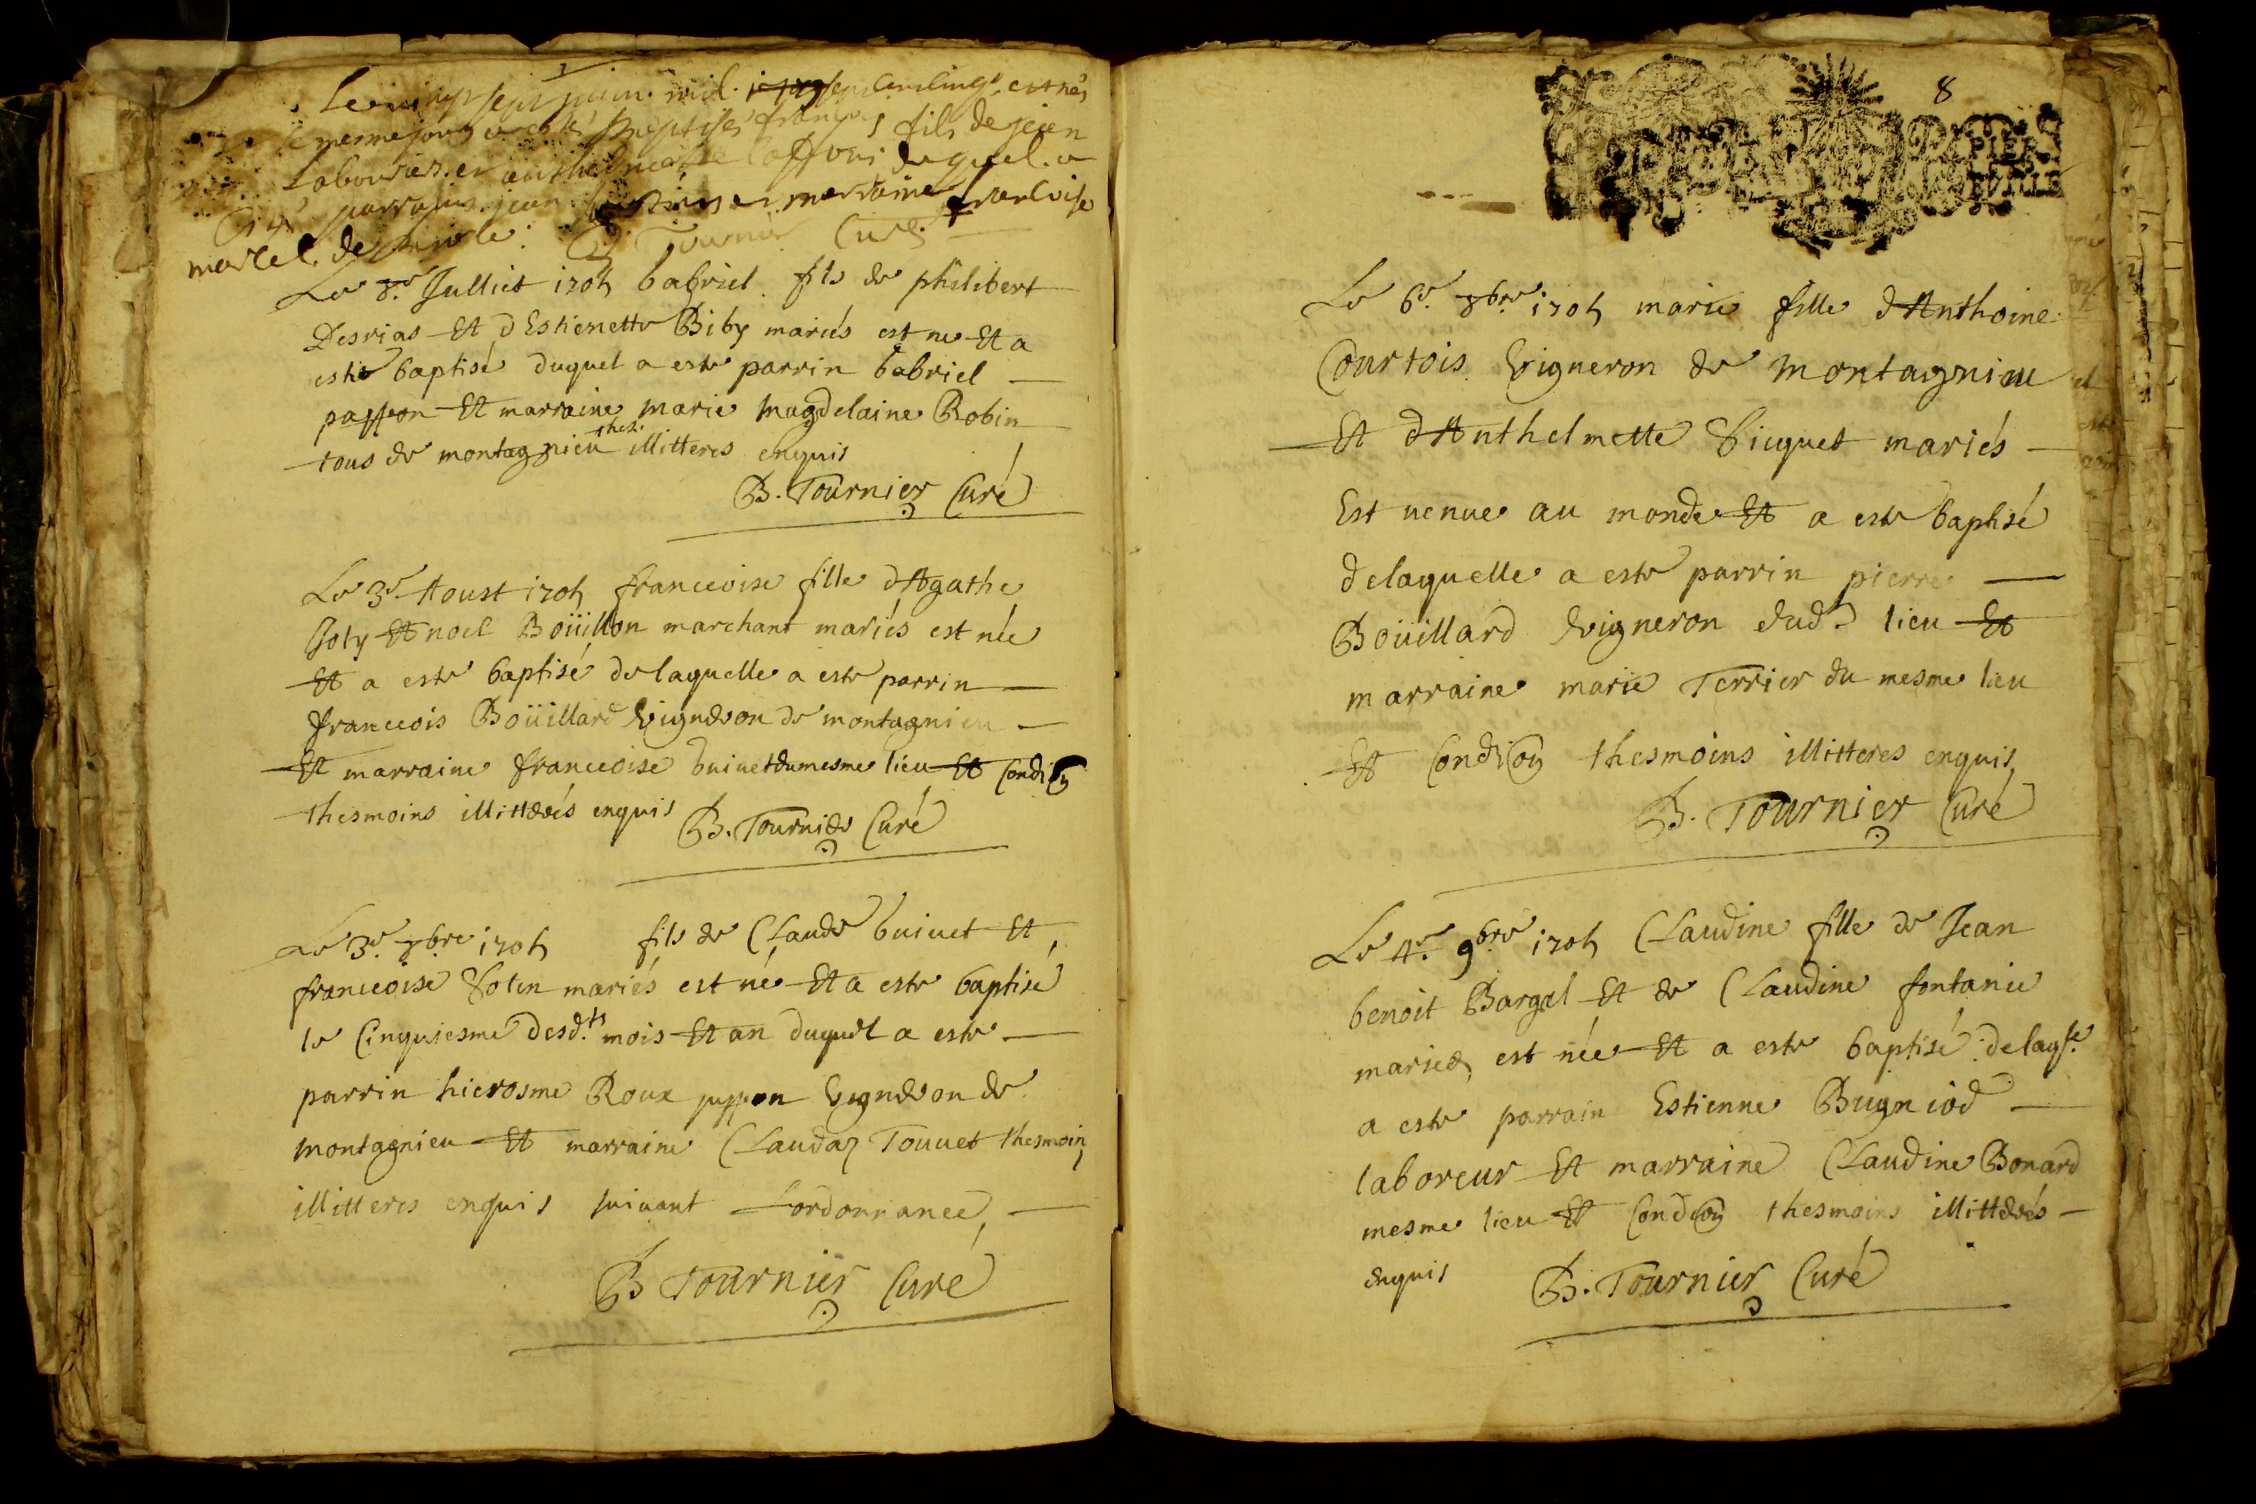 Le vingt sept juin mil sept cent cinq est né
le mesme jour a estés baptisés françois fils de jean
Labouries et duquel a
parrain jean et marraine francoise
marcel de
B Tournier Curé
Le 8e Julliet 1705 Gabriel fils de philibert
Desrias Et d Estienette Biby mariés est ne Et a
este baptisé duquel a este parrin Gabriel
passon Et marraine marie magdelaine Robin
tous de montagnieu thes. illitteres enquis
B. Tournier Curé
Le 3e Aoust 1705 franceoise fille d Agathe
Joly Et noel Boüillon marchant mariés est née
Et a este baptisé de laquelle a este parrin
franceois Boüillard Vigneron de montagnieu
Et marraine franceoise buiuet du mesme lieu Et Condi͠on
thesmoins illitterés enquis B. Tournier Curé
Le 3e 8bre 1705 fils de Claude buiuet Et
franceoise mariés est né Et a este baptisé
le Cinquiesme desd.ts mois Et an duquel a este
parrin hierosme Roux Vigneron de
montagnieu Et marraine Claudaz Touuet thesmoin
illitteres enquis suiuant Lordonnance,
B Tournier Curé
8
Le 6e. 8bre 1705 marie fille d Anthoine
Courtois Vigneron de montagnieu
Et d Anthelmette mariés
Est uenue au monde Et a este baptisé
delaquelle a este parrin pierre
Boüillard Vigneron dud. lieu Et
marraine marie Terrier du mesme lieu
Et Condi͠on thesmoins illitteres enquis
B. Tournier Curé
Le 4e. 9bre 1705 Claudine fille de Jean
benoit Bargal Et de Claudine fontanie
mariés est née Et a este baptisé delaqle
a este parrain Estienne Bugniod
laboreur Et marraine Claudine Bonard
mesme lieu Et Condi͠on thesmoins illitterés
enquis B. Tournier Curé